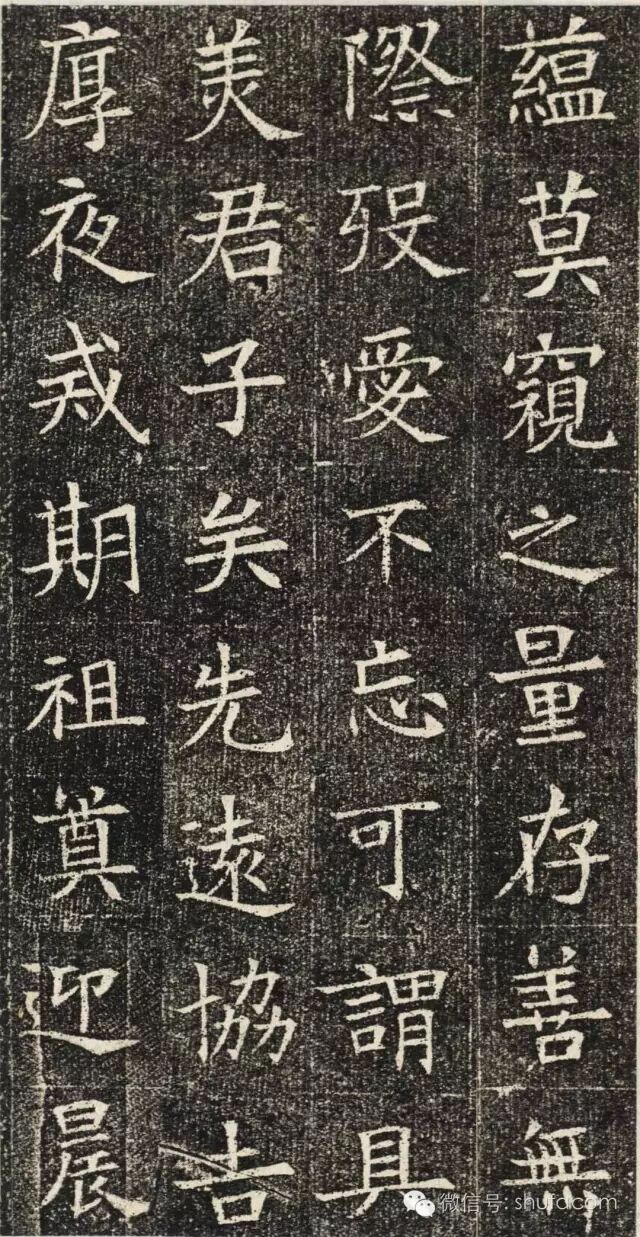 蘊莫窺之量存善無
際歿愛不忘可謂具
美君子矣先遠協吉
厚夜戒期祖奠迎晨
微信号: shufa.com